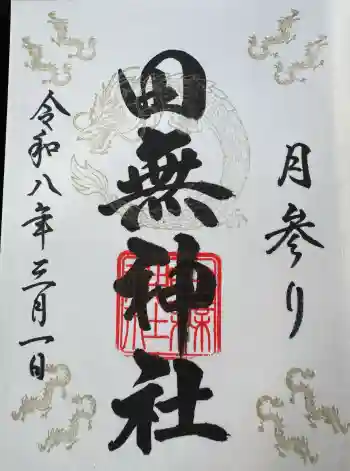 月参り
田無神社
令和八年三月一日